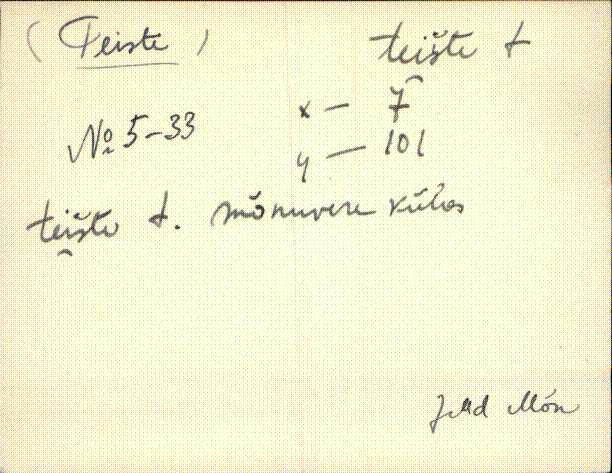 (Teiste) teište t
x — 7
№ 5-33
y — 101
teište t. mõnuvere külas
JMd Mõn